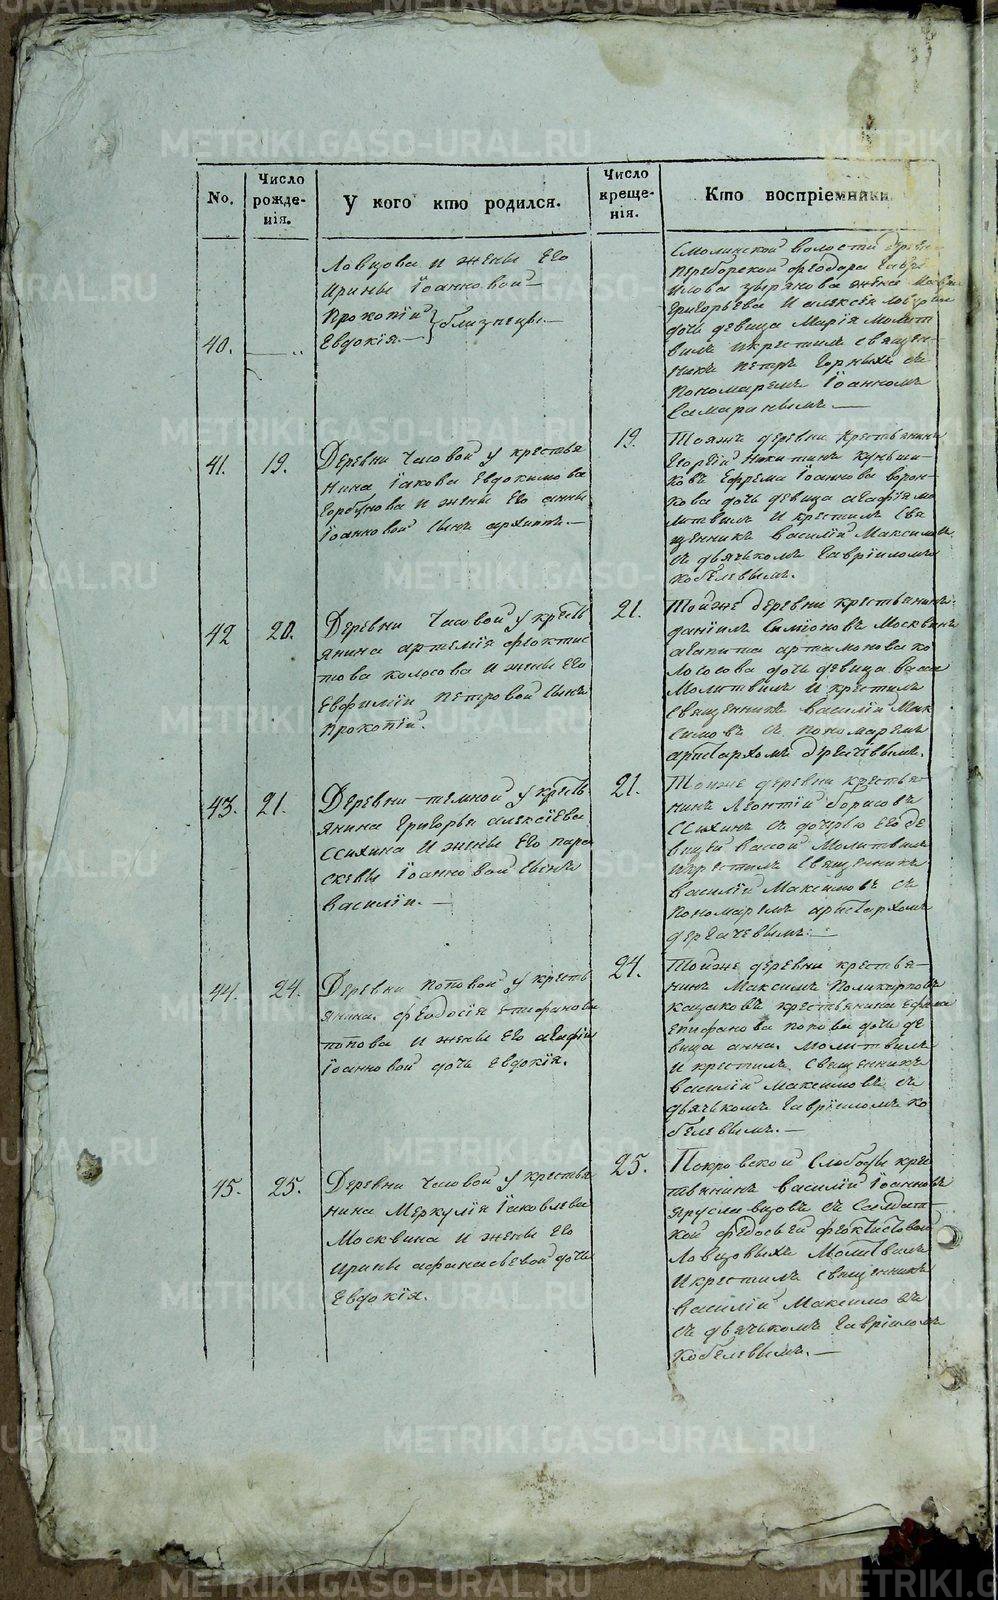 No.
Число рожде-
нія.
У кого кто родился.
Число
креще-
нія.
Кто воспріемники.
Ловцова и жены его
Ирины Іоанновой
Прокопій
40. Евдокія.
близнецы.
Смолинской волости
Переборской Феодора
Зырянова жена
Григорьева и Алексѣя
дочь девица Марія молит
вилъ и крестилъ священ-
никъ Петръ Горныхъ съ
пономаремъ Іоанномъ
41. 19. Деревни Часовой у крестья
нина Іакова Евдокимова
Горбунова и жены его Анны
Іоанновой сынъ Архиппъ.
19. Тояжъ деревни крестьянинъ
Георгій Никитинъ
Ефрема Іоаннова
дочь девица Агафія мо
литвилъ и крестилъ свя
щенникъ Василій Максимовъ
съ дьячькомъ Гавріиломъ
Кобелевымъ.
42 20. Деревни Часовой у кресть
янина Артемія Феоктис
това Колосова и жены его
Евфиміи Петровой сынъ
Прокопій.
21. Тойже деревни крестьянинъ
Даніилъ Симіоновъ Москвинъ
Агапита Артамонова Ко
лосова дочь девица Васса
молитвилъ и крестилъ
священникъ Василій Мак
симовъ съ пономаремъ
Аристархомъ Дергачевымъ.
43. 21. Деревни Темной у кресть
янина Григорья Алексіева
Ссихина и жены его Пара
скевы Іоанновой сынъ
Василій.
21. Тойже деревни крестья-
нинъ Леонтій Борисовъ
Ссихинъ съ дочерью его де
вицей Вассой молитвилъ
икрестилъ священникъ
Василій Максимовъ съ
пономаремъ Аристархомъ
Дергачевымъ.
44. 24. Деревни Поповой у кресть
янина Феодосія Епифанова
Попова и жены его Агафіи
Іоанновой дочь Евдокія.
24. Тойже деревни крестья-
нинъ Максимъ Поликарповъ
Казаковъ крестьянина
Епифанова Попова дочь де
вица Анна. молитвилъ
и крестилъ священникъ
Василій Максимовъ съ
дьячькомъ Гавріиломъ Ко
белевымъ.
45. 25. Деревни Часовой у крестья
нина Меркулія Іаковлева
Москвина и жены его
Ирины Афанасьевой дочь
Евдокія.
25. Покровской слободы крес
тьянинъ Василій Іоанновъ
Ярославцовъ съ солдат-
кой Федосьей Феоктистовой
Ловцовыхъ молитвилъ
и крестилъ священникъ
Василій Максимовъ
съ дьячькомъ Гавріиломъ
Кобелевымъ.
METRIKI.GASO-URAL.RU